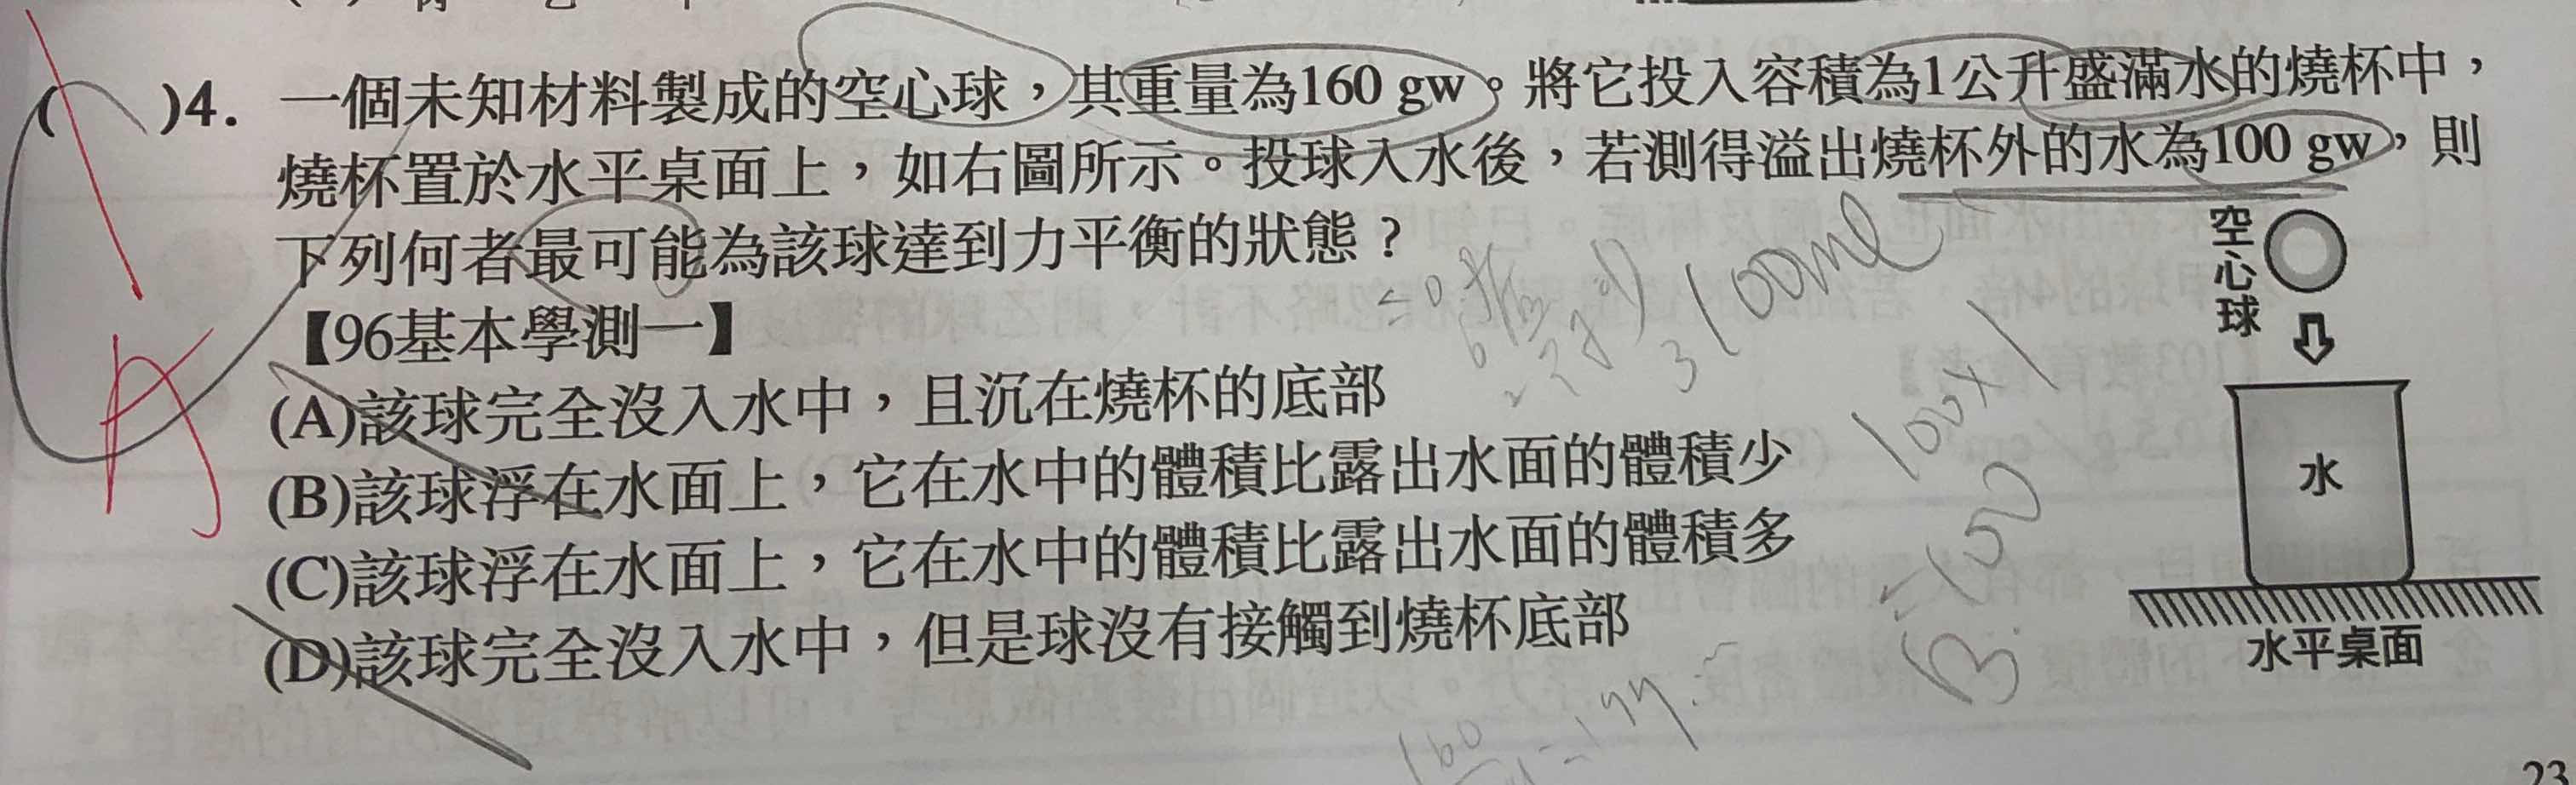 ( )4. 一個未知材料製成的空心球，其重量為160 gw。將它投入容積為1公升盛滿水的燒杯中，
燒杯置於水平桌面上，如右圖所示。投球入水後，若測得溢出燒杯外的水為100 gw，則
下列何者最可能為該球達到力平衡的狀態？
【96基本學測一】
(A)該球完全沒入水中，且沉在燒杯的底部
(B)該球浮在水面上，它在水中的體積比露出水面的體積少
(C)該球浮在水面上，它在水中的體積比露出水面的體積多
(D)該球完全沒入水中，但是球沒有接觸到燒杯底部
空心球
水
水平桌面
A
100ml
100×1
B=100
160
23